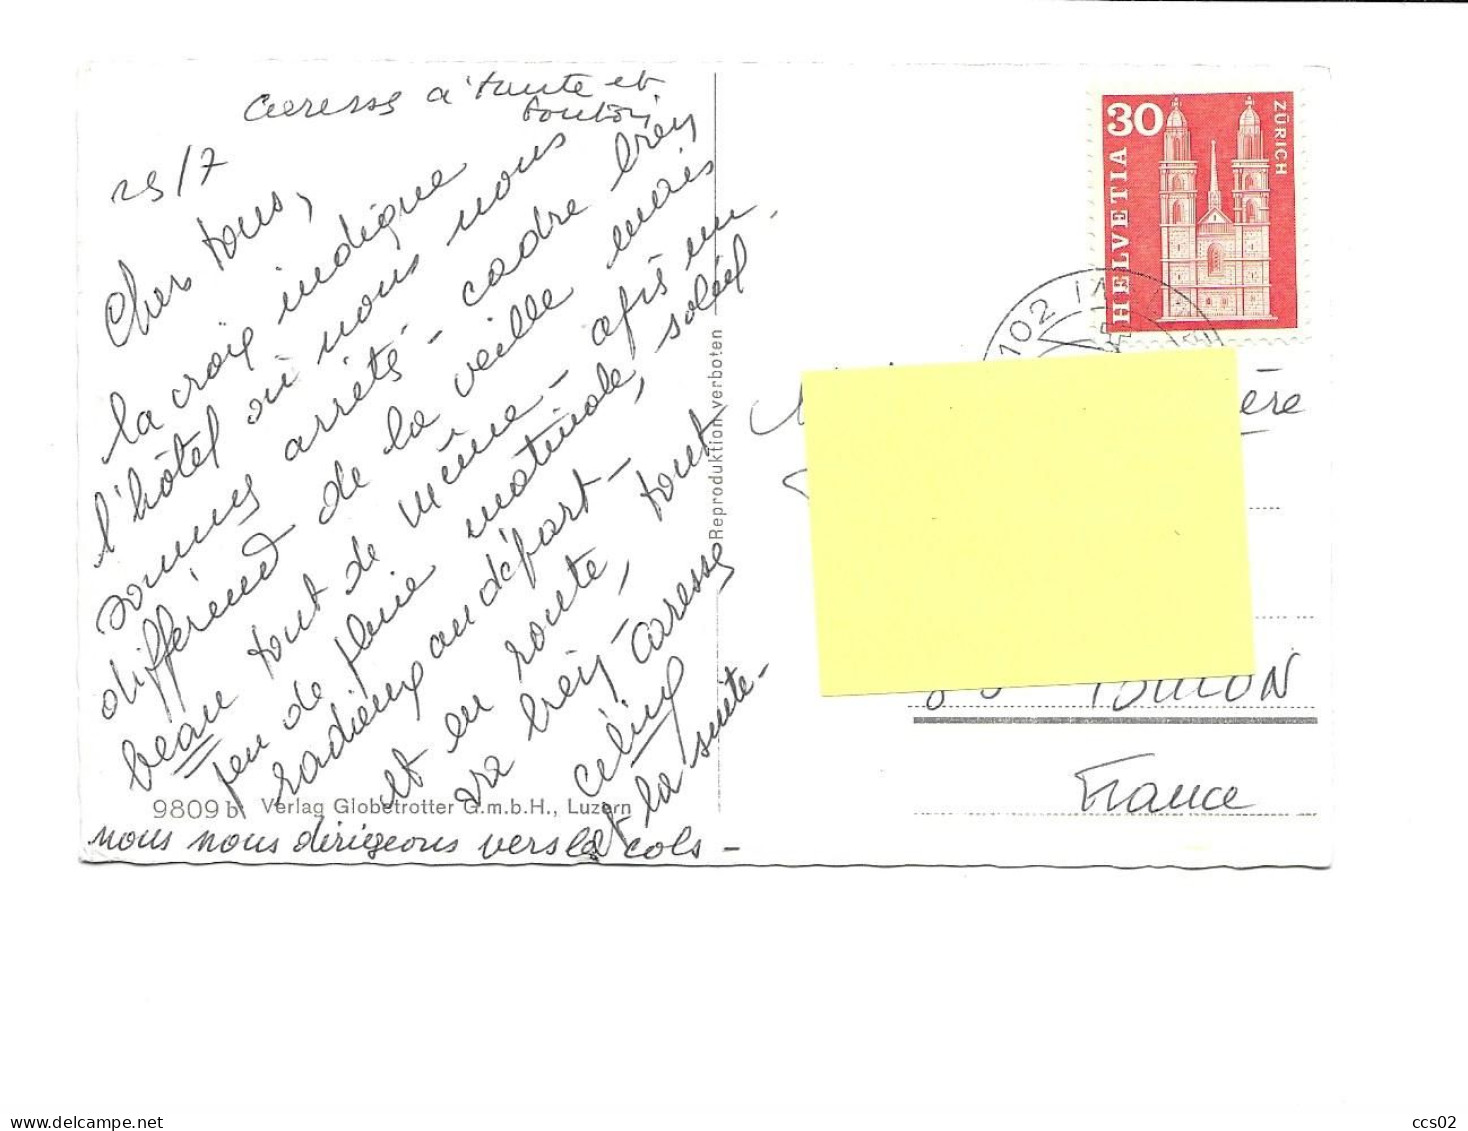 Caresses à tante et
tonton
29/7
Chers tous,
la croix indique
l'hôtel où nous nous
sommes arrêtés - cadre bien
différent de la veille mais
beau tout de même - après un
peu de pluie matinale, soleil
radieux au départ -
et en route, tout
va bien Caresses
Céline
et la suite -
nous nous dirigeons vers les cols -
9809 b Verlag Globetrotter G.m.b.H., Luzern
Reproduktion verboten
30
HELVETIA
ZÜRICH
102
ère
TOULON
France
ccs02